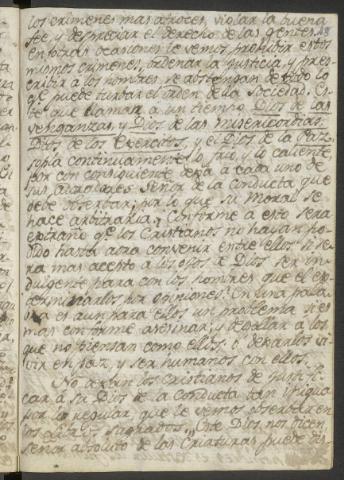 los crimenes mas atroces, violar la buena
fee y despreciar el derecho de las gentes.
En otras ocasiones le vemos prohibir estos
mismos crimenes, ordenar la justicia, y pres-
cribir a los hombres se abstengan de todo lo
qe puede turbar el orden de la Sociedad. Es-
te que llaman a un tiempo Dios de las
venganzas, y Dios de las misericordias.
Dios de los Exercitos, y el Dios de la Paz,
sopla continuamente lo frio, y lo caliente,
por con siguiente dexa a cada uno de
sus adoradores Señor de la conducta que
debe observar; por lo que su Moral se
hace arbitraria. Conforme a esto sera
extraño qe los Cristianos no hayan po-
dido hasta aora convenir entre ellos si se-
ra mas acepto a los ojos de Dios ser in-
dulgente para con los hombres que el ex-
terminarlos por opiniones? En una pala-
bra es aun para ellos un problema si es
mas conforme asesinar, y degollar a los
que no piensan como ellos, o dexarlos vi-
vir en paz, y ser humanos con ellos.
No dexan los Cristianos de justifi-
car a su Dios de la conducta tan iniqua
por lo regular, que le vemos observar en
los sagrados. Este Dios nos dicen,
Señor absoluto de las Criaturas puede